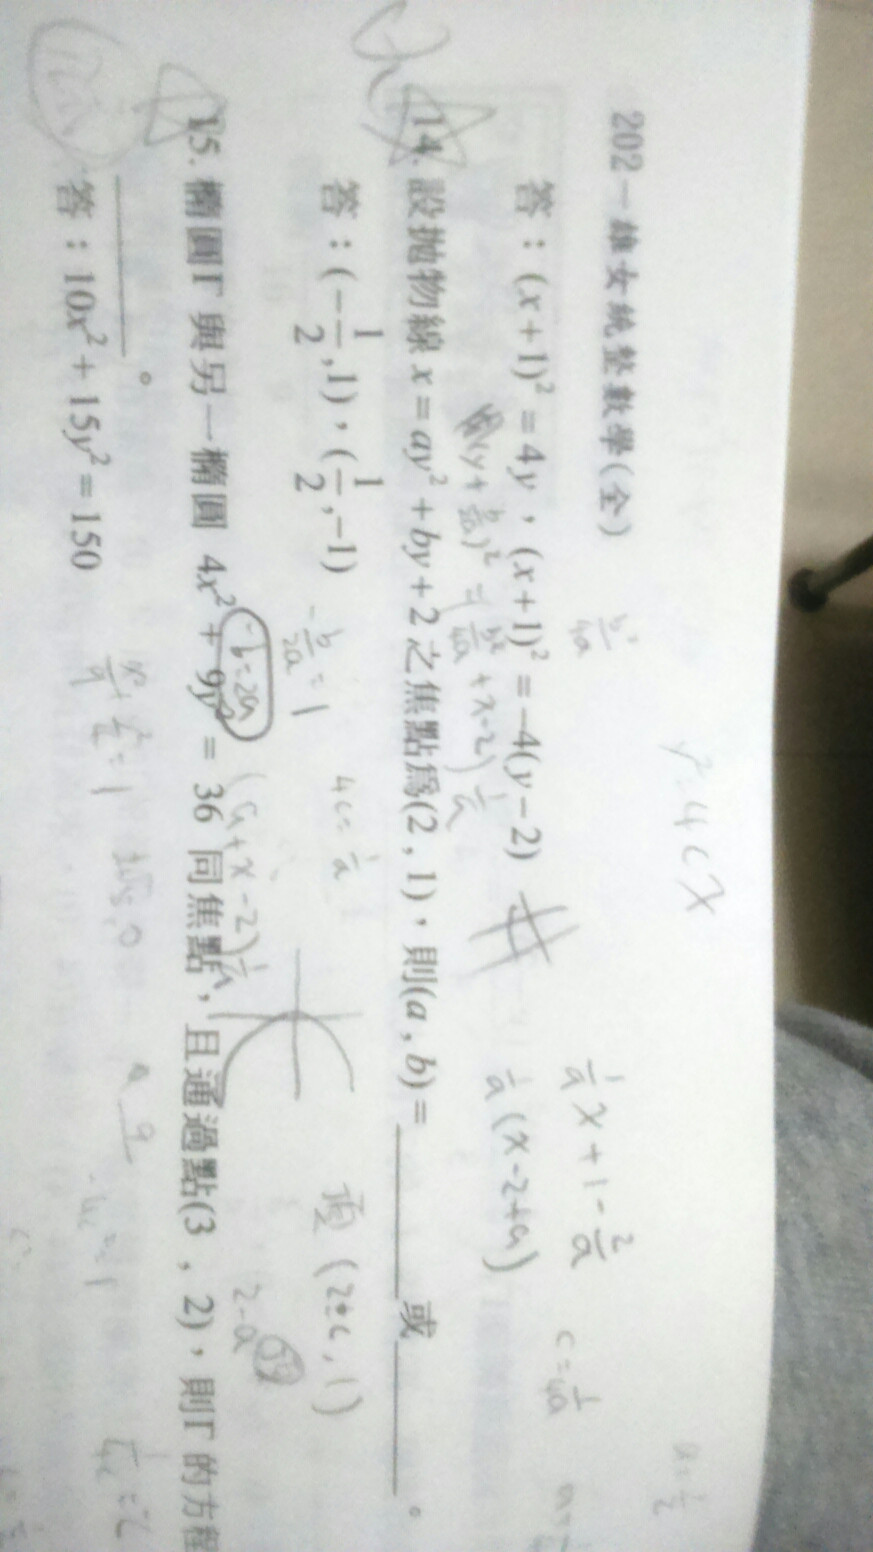 202－雄女統整數學(全)
答：(x+1)² = 4y，(x+1)² = -4(y-2)
14. 設拋物線 x = ay² + by + 2 之焦點為(2 , 1)，則(a , b) = ______ 或 ______。
答：(-1/2 , 1)，(1/2 , -1)
15. 橢圓Γ與另一橢圓 4x² + 9y² = 36 同焦點，且通過點(3 , 2)，則Γ的方程
______。
答：10x² + 15y² = 150
y² = 4cx
1/a x + 1 - 2/a
1/a (x-2+a)
-b/2a = 1
-b=2a
4c = 1/a
(a+x-2) 1/a
頂 (2±c , 1)
c = 1/4a
2-a